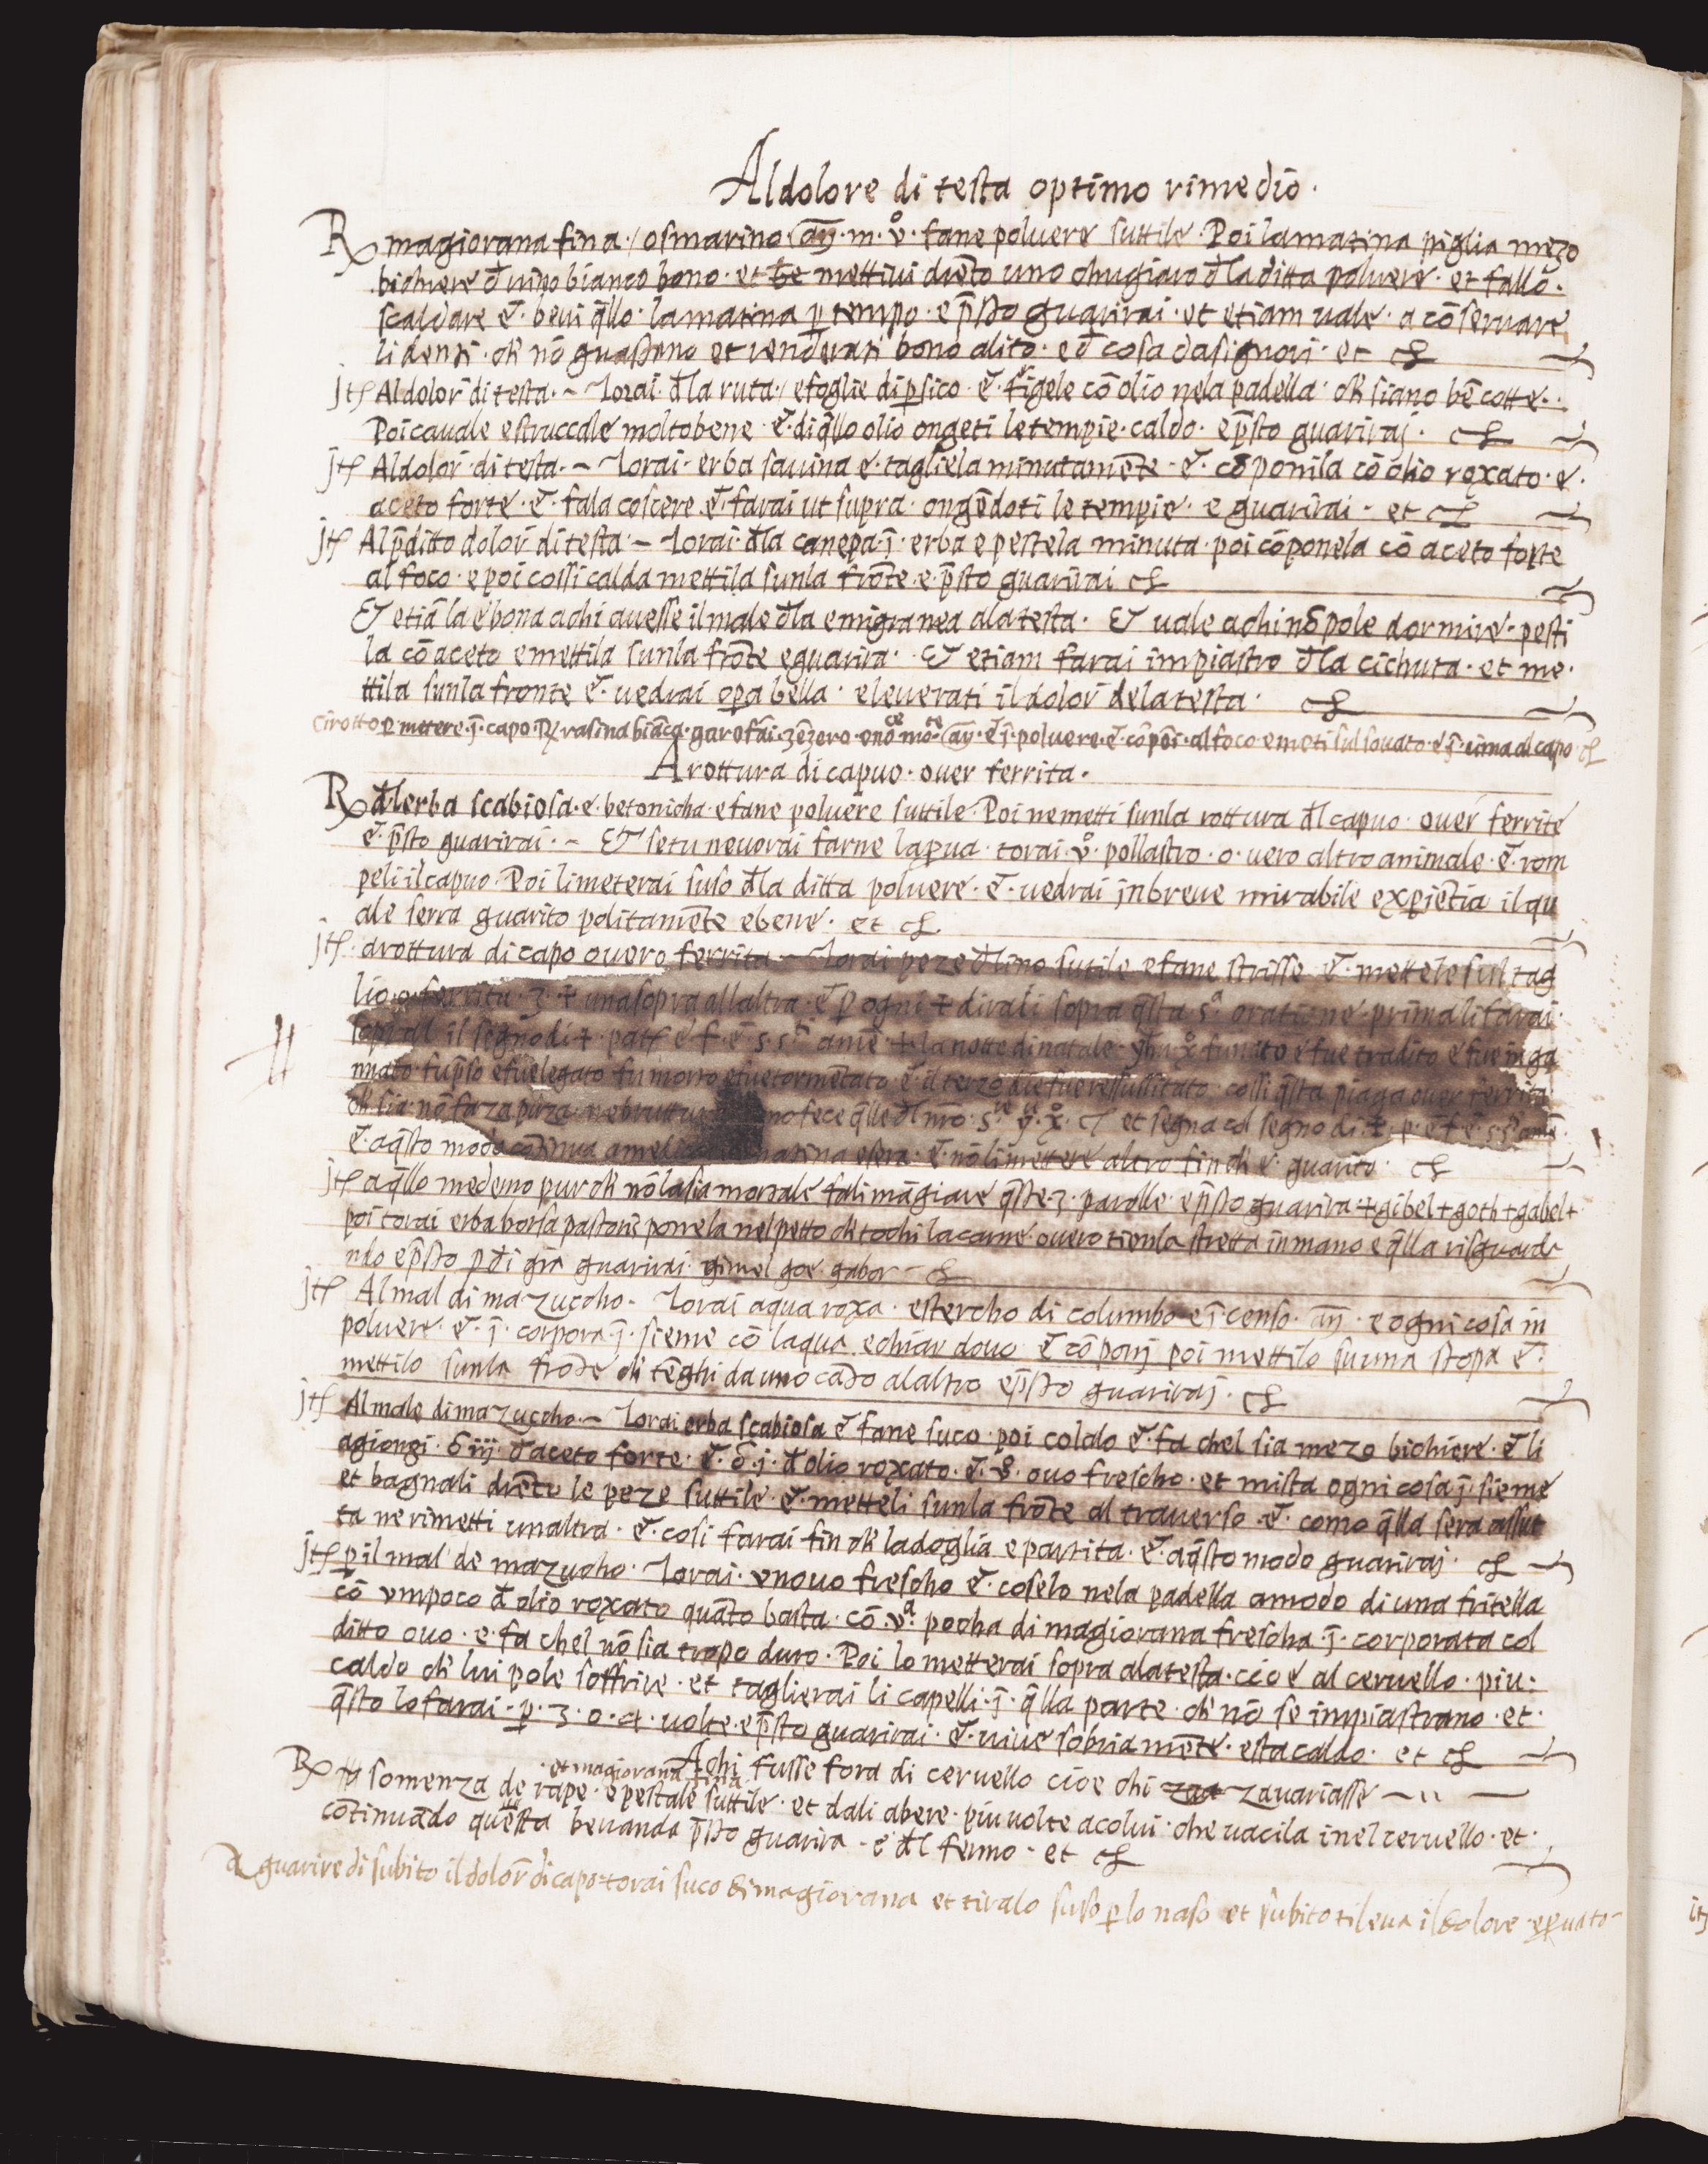 Aldolore di testa optimo rimedio.
℞ magiorana fina / osmarino. añ. m. v̊. fane poluere suttile. Poi lamatina piglia mezo
bichiere d̄ uino bianco bono. et mettiui drēto uno chugiaro d̄la ditta poluere. et fallo.
scaldare e. beui q̄llo. lamatina p tempo. e p̄sto guarirai. et etiam uale. a cōseruare
li denti. ch nō guastano et renderati bono alito. ed cosa dasignori. et
jtꝭ Aldolor̄ di testa. ~ Torai. d̄la ruta / e foglie di p̱sico. e. frigele cō olio nela padella. ch siano bē cotte..
Poi cauale e struccale molto bene e. di q̄llo olio ongeti le tempie. caldo. e p̄sto guariraj.
jtꝭ Aldolor̄ di testa. ~ Torai. erba sauina e. tagliela minutamēte. e. cōponila cō olio roxato. e.
aceto forte. e. fala coscere. e. farai ut supra. ongēdoti le tempie. e guarirai. et
jtꝭ Al p̄ditto dolor̄ di testa ~ Torai. d̄la canepa. j̄. erba e pestela minuta. poi cōponela cō aceto forte
al foco. e poi cossi calda mettila sunla frōte. e. p̄sto guarirai
Et etiā la e bona a chi auesse il male d̄la emigranea ala testa. Et uale a chi nō pole dormire. pesti
la cō aceto e mettila sunla frōte e guarira. Et etiam farai impiastro d̄la cichuta. et me.
ttila sunla fronte e. uedrai opa bella. e leuerati il dolor̄ dela testa.
Cirotto p mettere. j̄. capo. ℞ rasina biāca. garofāi. zēzero. añ. e j̄. poluere. e. cōpōi. al foco e meti sul souato. e j̄. cima al capo
A rottura di capuo. ouer ferrita.
℞ d̄lerba scabiosa. e. betonicha. e fane poluere suttile. Poi ne metti sunla rottura d̄l capuo. ouer ferrite
e. p̄sto guarirai. ~ Et se tu ne uorai farne la p̱ua. torai. v̊. pollastro. o. uero altro animale. e. rom
peli il capuo. Poi li meterai suso d̄la ditta poluere. e. uedrai jn breue mirabile exp̱ientia il qu
ale serra guarito politamēte e bene. et
jtꝭ. a rottura di capo ouero ferrita ~ Torai peze d̄ lino sutile e fane strisse e. mettele sul tag
lio. o. ferrita. 3. + una sopra allaltra. e p ogni + dirali sopra q̄sta s.ᵃ oratione. prima li farai.
il segno di +. patꝭ e. f. e. s. s.ᵗⁱ amē. + la notte di natale. yhu x̊. fu nato e fue tradito e fue inga
nnato. fu p̄so e fue legato fu morto e fue tormētato. e. il terzo die fue ressussitato. cossi q̄sta piaga ouer ferrita
ch sia. nō faza puza. ne bruttura fece q̄lle d̄l nr̄o. s.ʳᵉ y. x̊. et segna col segno di. +. p. e f e. s. s.ᵗⁱ amē.
e. a q̄sto modo cōtinua matina e sera. e. nō li mettere altro fin ch e. guarito.
jtꝭ a q̄llo medemo pur ch nō la sia mortale fali māgiare q̄ste. 3. parolle. e p̄sto guarira. + gibel + goth + gabel +
poi torai erba borsa pastoris ponela nel petto ch tochi la carne. ouero tienla stretta in mano e q̄lla risguarda
ndo e p̄sto p di gr̄a guarirai. gimel goe. gabor ~
jtꝭ Al mal di mazuccho. Torai aqua roxa. e stercho di columbo e j̄censo. añ. e ogni cosa in
poluere. e. j̄. corpora. j̄. sieme cō laqua e chiar douo e cōponj poi mettilo su una stopa e.
mettilo sunla frōte ch tēghi da uno cāto alaltro e p̄sto guariraj.
jtꝭ Al male di mazuccho. ~ Torai erba scabiosa e fane suco. poi colalo e. fa chel sia mezo bichiere. e li
agiongi. δ iij. d̄ aceto forte. e. δ. j. d̄ olio roxato. e. v̊. ouo frescho. et mista ogni cosa j̄. sieme
et bagnali drēto le peze suttile. e. metteli sunla frōte al trauerso. e. como q̄lla sera assut
ta ne rimetti unaltra. e. cosi farai fin ch la doglia e partita. e. a q̄sto modo guariraj.
jtꝭ p il mal de mazucho. Torai. vn ouo frescho e. coselo nela padella a modo di una fritella
cō vmpoco d̄ olio roxato quāto basta. cō. v.ᵃ pocha di magiorana frescha. j̄. corporata col
ditto ouo. e. fa chel nō sia tropo duro. Poi lo metterai sopra ala testa. cioe al ceruello. piu.
caldo ch lui pole soffrire. et taglierai li capelli. j̄. q̄lla parte. ch nō se impiastrano. et.
q̄sto lo farai. p. 3. o. 4. uolte. e p̄sto guarirai. e. uiue sobriamēte. e sta caldo. et
Achi fusse fora di ceruello cioe chi zaa zauariasse
et magiorana fina
℞ somenza de rape. e pestale suttile. et dali a bere. piu uolte a colui. che uacila inel ceruello. et.
cōtinuādo questa beuanda p̄sto guarira. e d̄l fermo. et
A guarire di subito il dolor̄ di capo torai suco di magiorana et tiralo suso p lo naso et subito ti leua il dolore